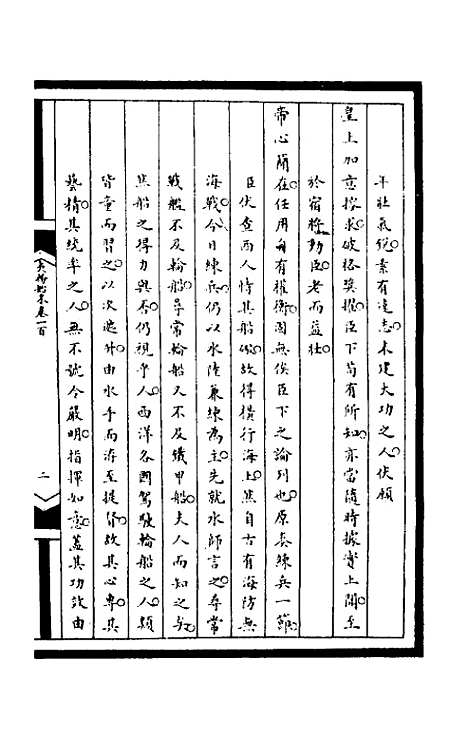 年壯氣銳素有遠志未建大功之人伏願
皇上加意搜求破格獎擢臣下苟有所知亦當隨時據實上聞至
於宿將勳臣老而益壯
帝心簡在任用自有權衡固無俟臣下之論列也原奏練兵一節
臣伏查西人恃其船礮故得橫行海上然自古有海防無
海戰今日練兵仍以水陸兼練為主先就水師言之尋常
戰艦不及輪船尋常輪船又不及鐵甲船夫人而知之矣
然船之得力與否仍視乎人西洋各國駕駛輪船之人類
皆童而習之以次遞升由水手而洊至提督故其心專其
藝精其統率之人無不號令嚴明指揮如意蓋其功效由
夷務始末卷一百
二